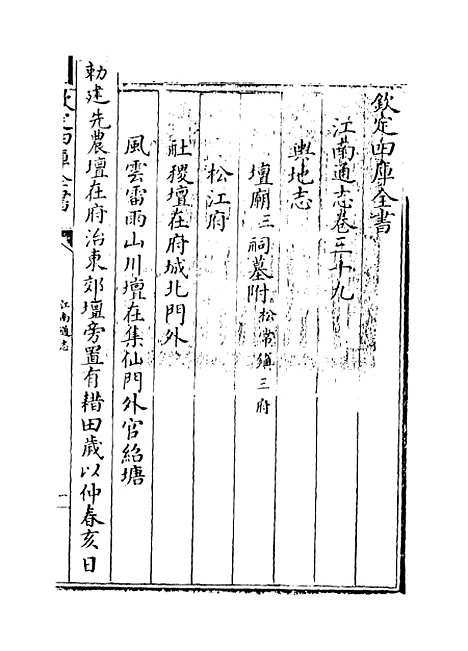 欽定四庫全書
江南通志卷三十九
輿地志
壇廟三祠墓附松常鎮三府
松江府
社稷壇在府城北門外
風雲雷雨山川壇在集仙門外官紹塘
勅建先農壇在府治東郊壇旁置有耤田歲以仲春亥日
欽定四庫全書
江南通志